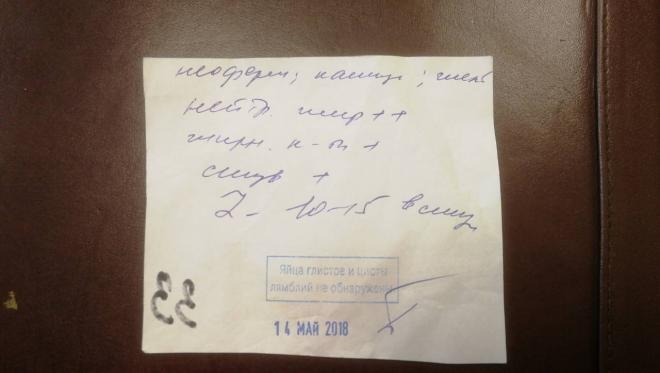 неоформ; кашиц; желт
нейтр. жир ++
жирн. к-ты +
слизь +
L - 10-15 в слиз
Яйца глистов и цисты
лямблий не обнаружены
14 МАЙ 2018